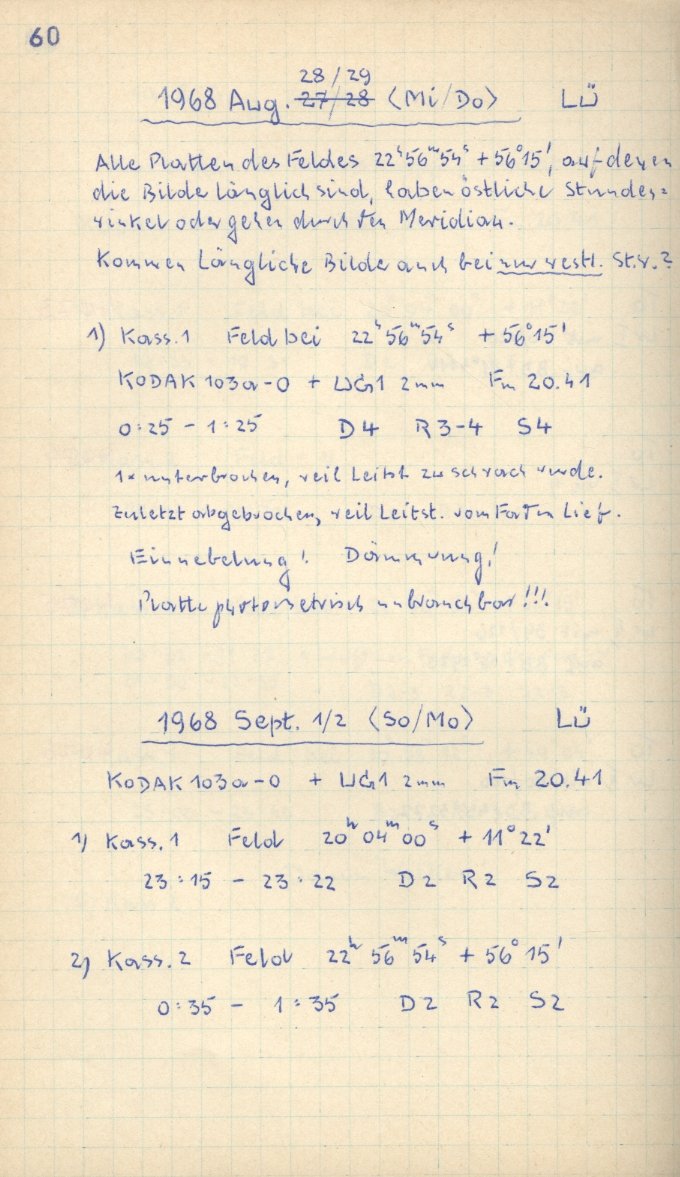 60
28/29
1968 Aug. 27/28 (Mi/Do) LÜ
Alle Platten des Feldes 22ʰ56ᵐ54ˢ +56°15', auf denen
die Bilder länglich sind, haben östliche Stunden=
winkel oder gehen durch den Meridian.
Kommen längliche Bilder auch bei nur westl. St.w.?
1) Kass. 1 Feld bei 22ʰ56ᵐ54ˢ +56°15'
KODAK 103a-O + UG1 2mm Fm 20.41
0:25 - 1:25 D4 R3-4 S4
1x unterbrochen, weil Leitst. zu schwach wurde.
Zuletzt abgebrochen, weil Leitst. vom Faden lief.
Einnebelung! Dämmerung!
Platte photometrisch unbrauchbar!!!
1968 Sept. 1/2 (So/Mo) LÜ
KODAK 103a-O + UG1 2mm Fm 20.41
1) Kass. 1 Feld 20ʰ04ᵐ00ˢ +11°22'
23:15 - 23:22 D2 R2 S2
2) Kass. 2 Feld 22ʰ56ᵐ54ˢ +56°15'
0:35 - 1:35 D2 R2 S2